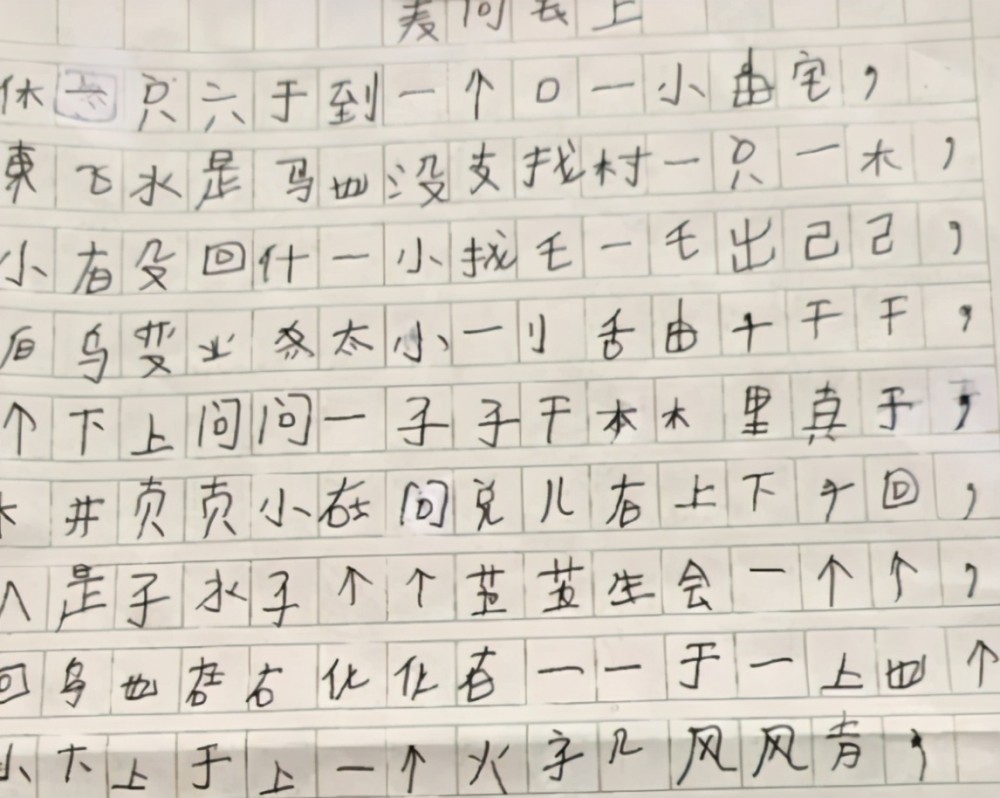 表问去上
休只六于到一个口一小曲宅，
東飞水是马也没支找村一只一木，
小右没回什一小找毛一毛出己己，
后乌业太小一刂舌由十干干，
个下上问问一子子干本木里真于，
井页页小在问兑儿右上下个回，
人是子水子个个苗苗生会一个个，
回乌也在右化化右一一于一上也个
小下上于上一个火字几风风青，